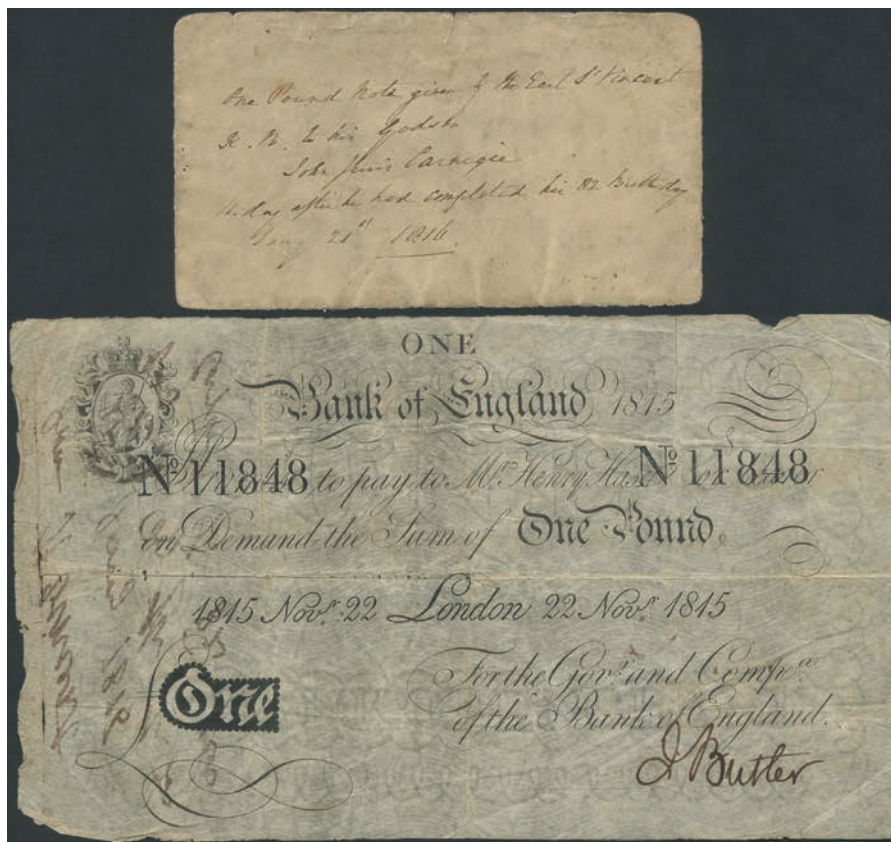 One Pound Note given by the Earl St Vincent
K. B. to his Godson
John Jervis Carnegie
the day after he had completed his 82 Birthday
Jany 21st 1816
ONE
Bank of England 1815
No 11848 to pay to Mr. Henry Hase No 11848
on Demand the Sum of One Pound
1815 Novr. 22 London 22 Novr. 1815
For the Govr. and Compa.
of the Bank of England.
One
J Butler